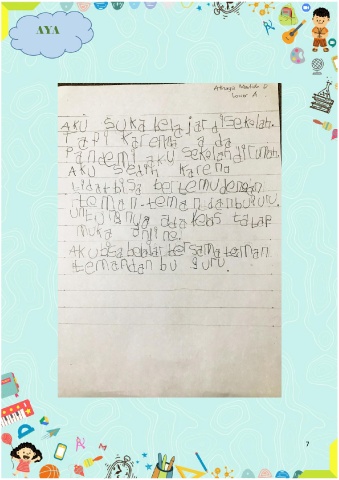 AYA
Lower A
AKU SUKa belajar disekolah.
Tapi karena ada
Pandemi aku sekolah dirumah.
AKU sedih Karena
tidak bisa bertemu dengan
teman-teman dan bu guru.
ada kelas tatap
muka online.
AKU bersama teman
teman dan bu guru.
7